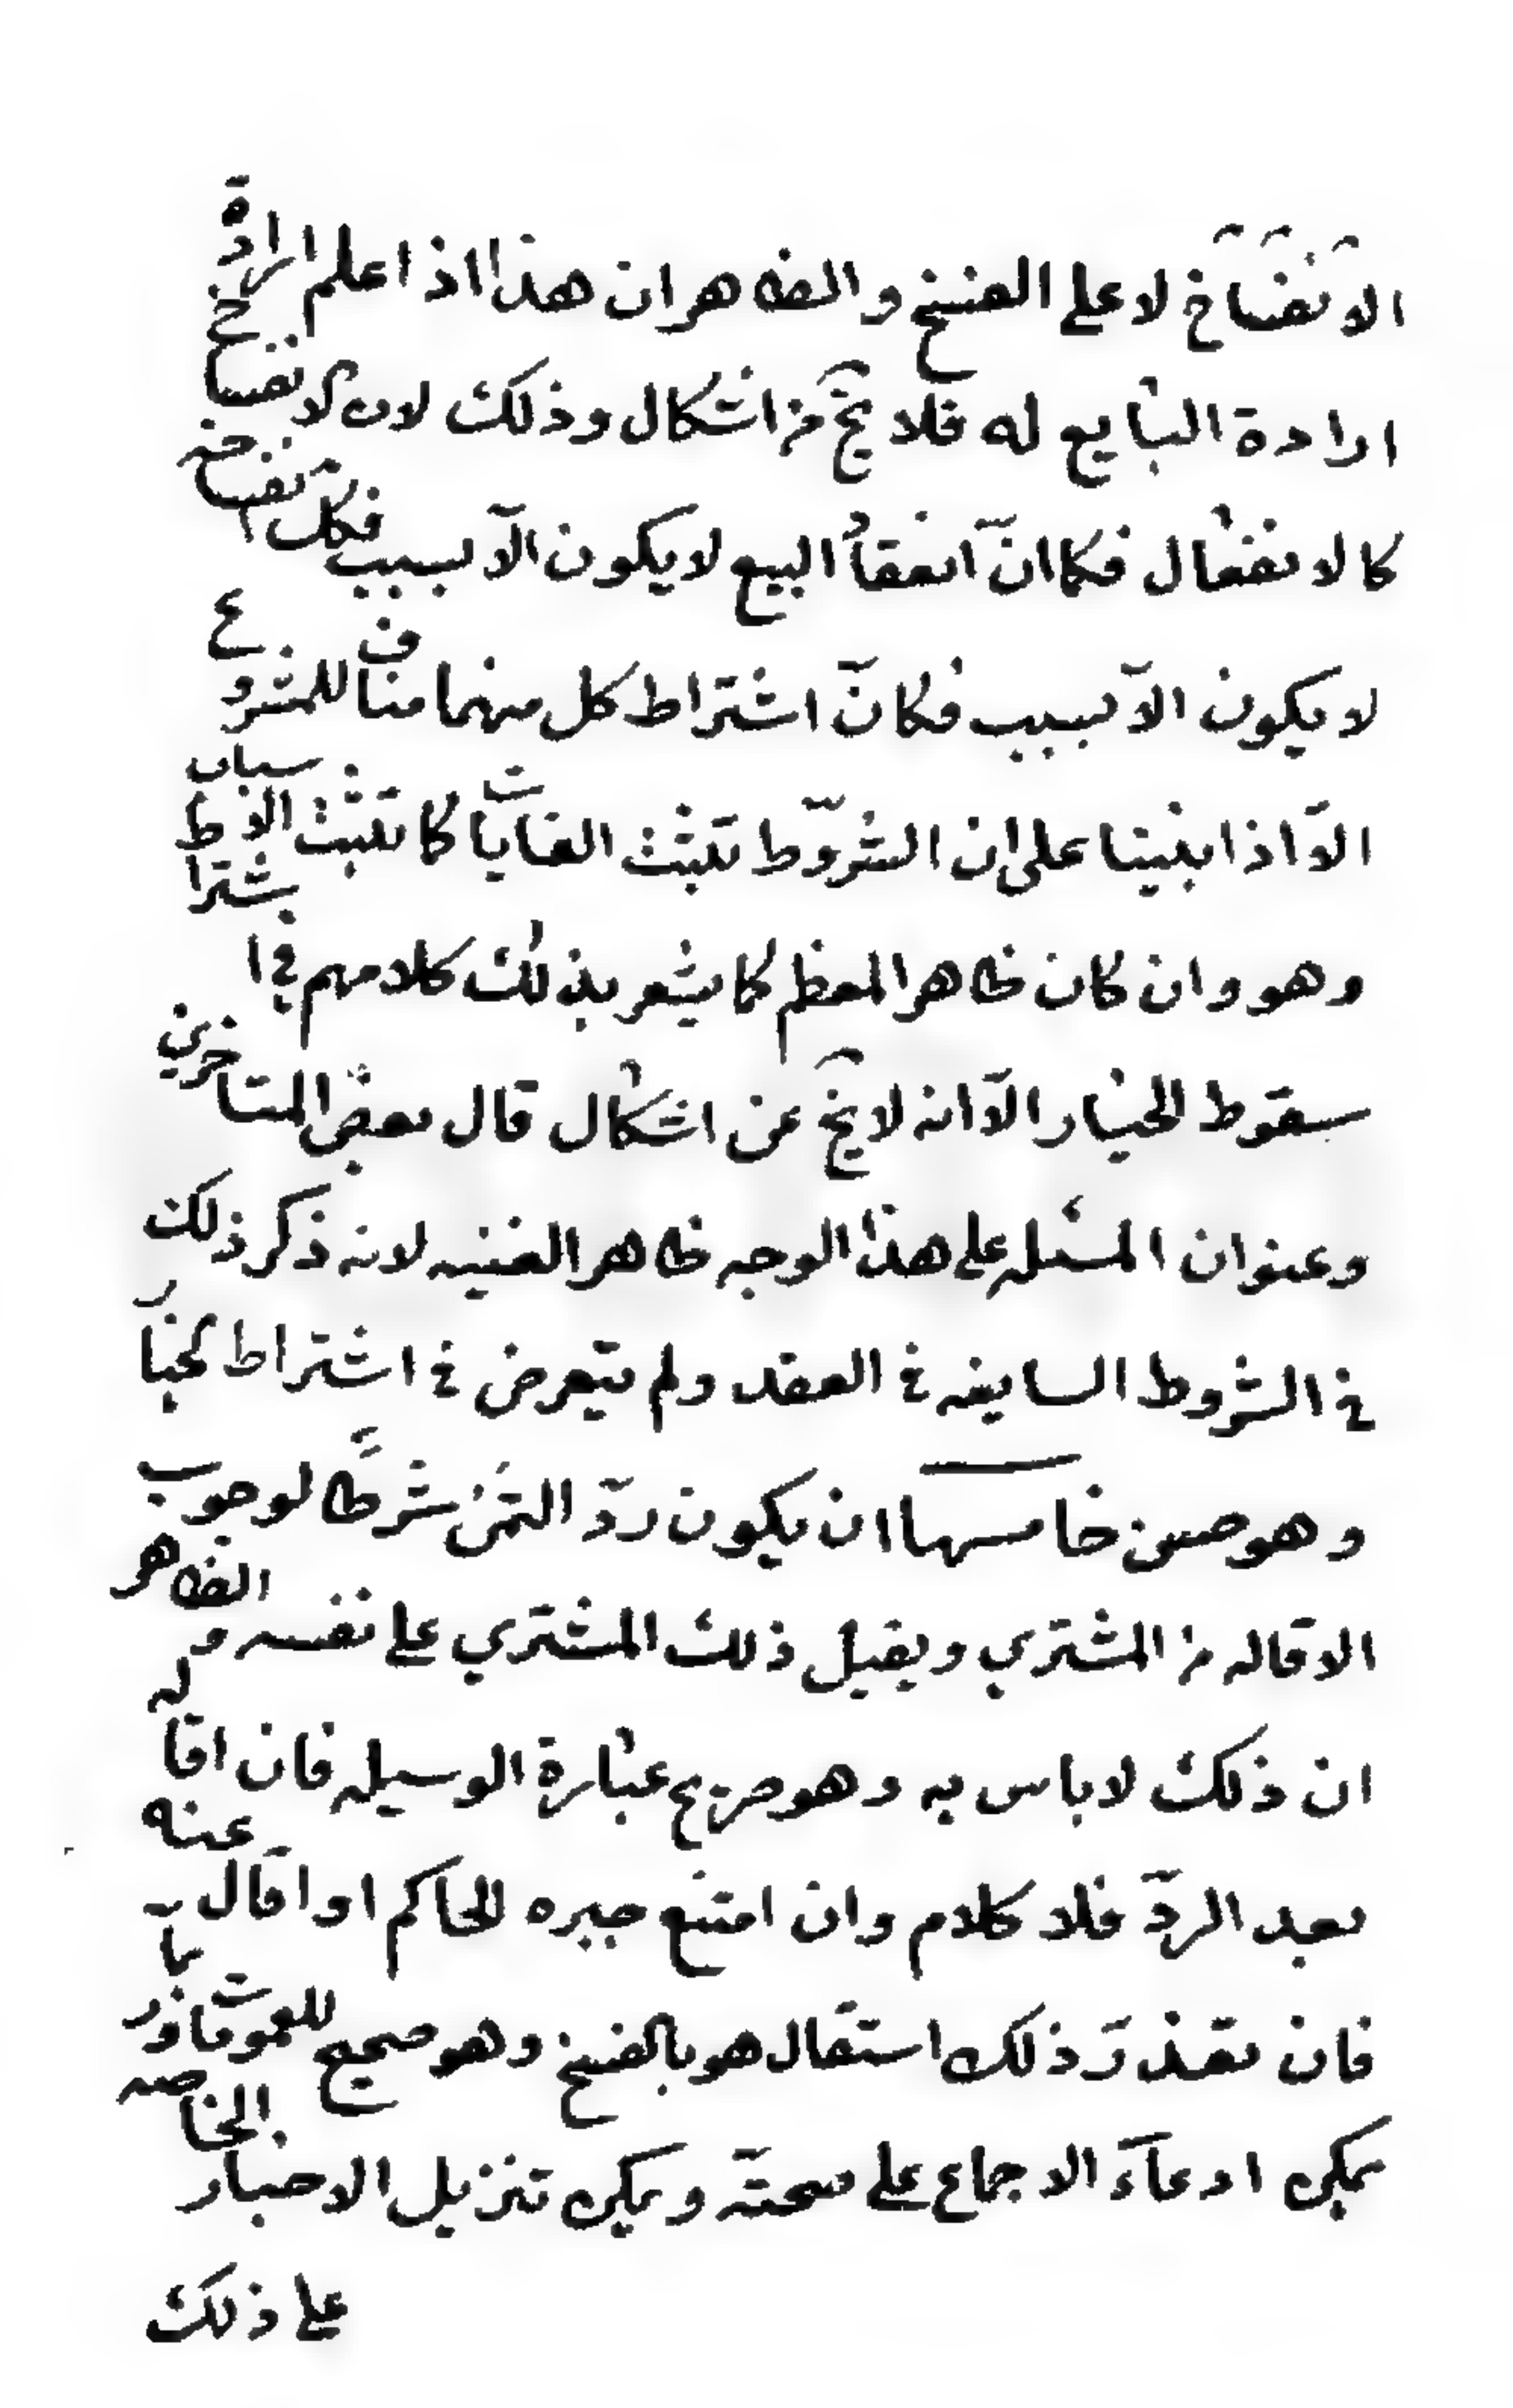 الانفساخ لا على الفسخ والظاهر ان هذا اذا علم ارادة
ارادة البايع له فلا يخ من اشكال وذلك لان الانفساخ
كالانفعال فكما انّ انعقاد البيع لا يكون الّا بسبب فكك انفساخه
لا يكون الّا بسبب فكانّ اشتراط كل منهما مناف للمشروع
الّا اذا بنينا على ان الشروط تثبت الغايات كما تثبت الاسباب
وهو وان كان ظاهر المعظم كما يشعر بذلك كلامهم في اشتراط
سقوط الخيار الّا انه لا يخ عن اشكال قال بعض المتاخرين
وعنوان المسئله على هذا الوجه ظاهر الغنيه لانه ذكر ذلك
في الشروط السايغه في العقد ولم يتعرض في اشتراط الخيار
وهو حسن خامسها ان يكون ردّ الثمن شرطاً لوجوب
الاقاله من المشتري ويقبل ذلك المشتري على نفسه والظاهر
ان ذلك لا باس به وهو صريح عبارة الوسيله فان اقاله
بعد الردّ فلا كلام وان امتنع جبره الحاكم او اقال عنه
فان تعذّر ذلك استقال هو بالفسخ وهو صحيح للعمومات
يمكن ادعاء الاجماع على صحته ويمكن تنزيل الاخبار الخاصه
على ذلك